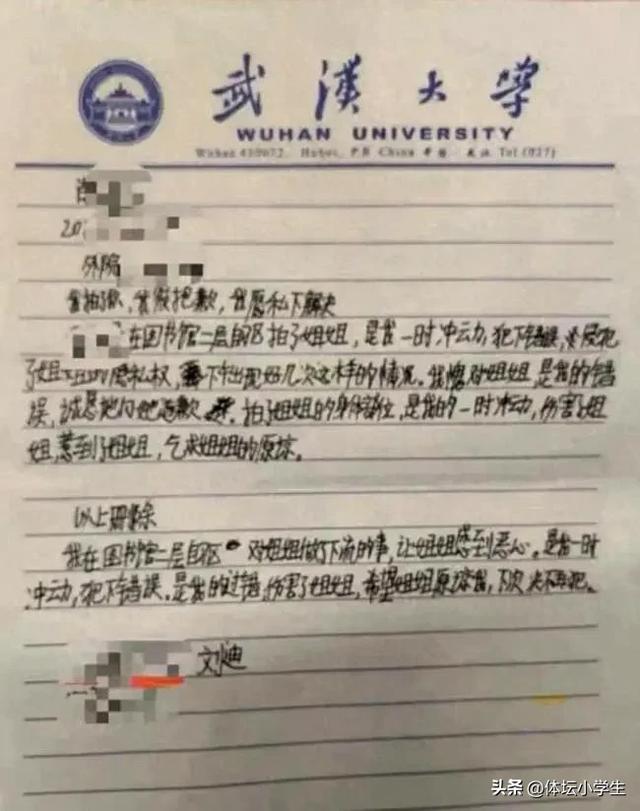 武漢大学
WUHAN UNIVERSITY
Wuhan 430072, Hubei, P.R China 中国·武汉 Tel (027)
肖
20
外院
我拍了你,我很抱歉,我愿私下解决
在图书馆二层自习区拍了姐姐,是我一时冲动,犯下错误,侵犯
了姐姐的隐私权,下出现好几次这样的情况。我愧对姐姐,是我的错
误,诚恳地向她道歉。拍了姐姐的身体部位,是我的一时冲动,伤害了姐
姐,惹到了姐姐,乞求姐姐的原谅。
以上删除
我在图书馆二层自习区对姐姐做了下流的事,让姐姐感到恶心。是我一时
冲动,犯下错误。是我的过错,伤害了姐姐,希望姐姐原谅我,下次决不再犯。
头条 @体坛小学生